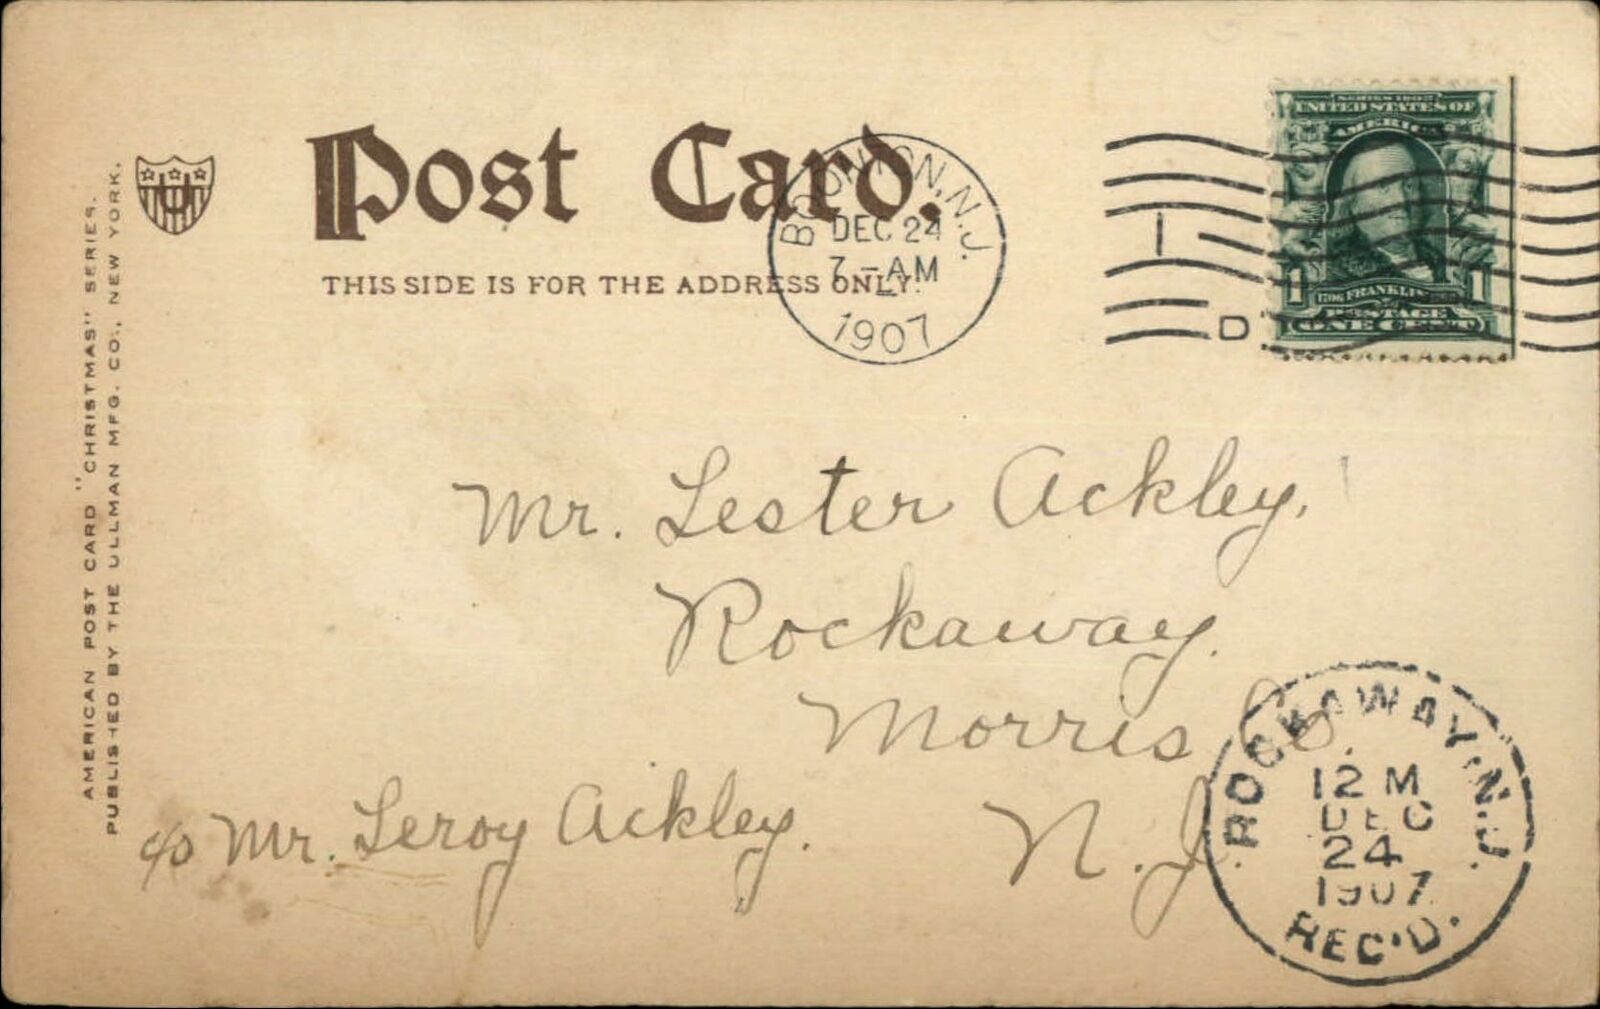 Post Card.
THIS SIDE IS FOR THE ADDRESS ONLY.
BOONTON, N.J.
DEC 24
7-AM
1907
1
D
SERIES 1902
UNITED STATES OF
AMERICA
1 1
1706 FRANKLIN
POSTAGE
ONE CENT
AMERICAN POST CARD "CHRISTMAS" SERIES.
PUBLISHED BY THE ULLMAN MFG. CO., NEW YORK.
Mr. Lester Ackley.
Rockaway.
Morris Co.
N.J.
c/o Mr. Leroy Ackley.
ROCKAWAY, N.J.
12 M
DEC
24
1907
REC'D.